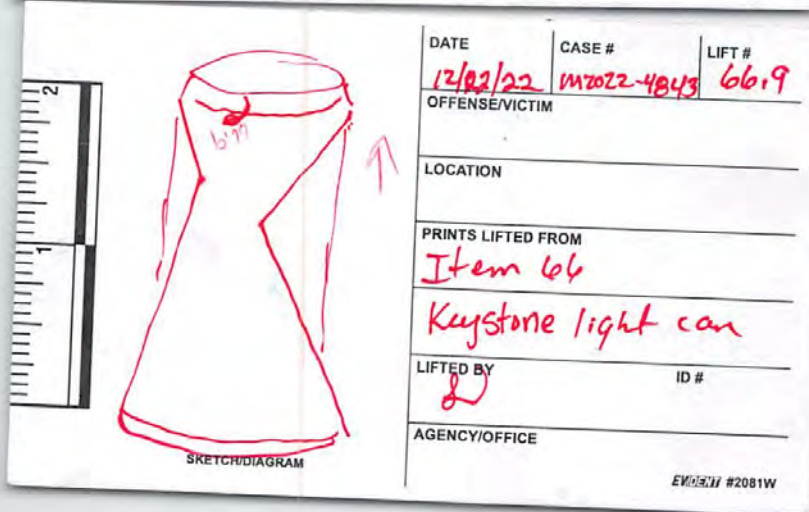 2
1
66.9
SKETCH/DIAGRAM
DATE
12/02/22
CASE #
M2022-4843
LIFT #
66.9
OFFENSE/VICTIM
LOCATION
PRINTS LIFTED FROM
Item 66
Keystone light can
LIFTED BY
ID #
AGENCY/OFFICE
EVIDENT #2081W